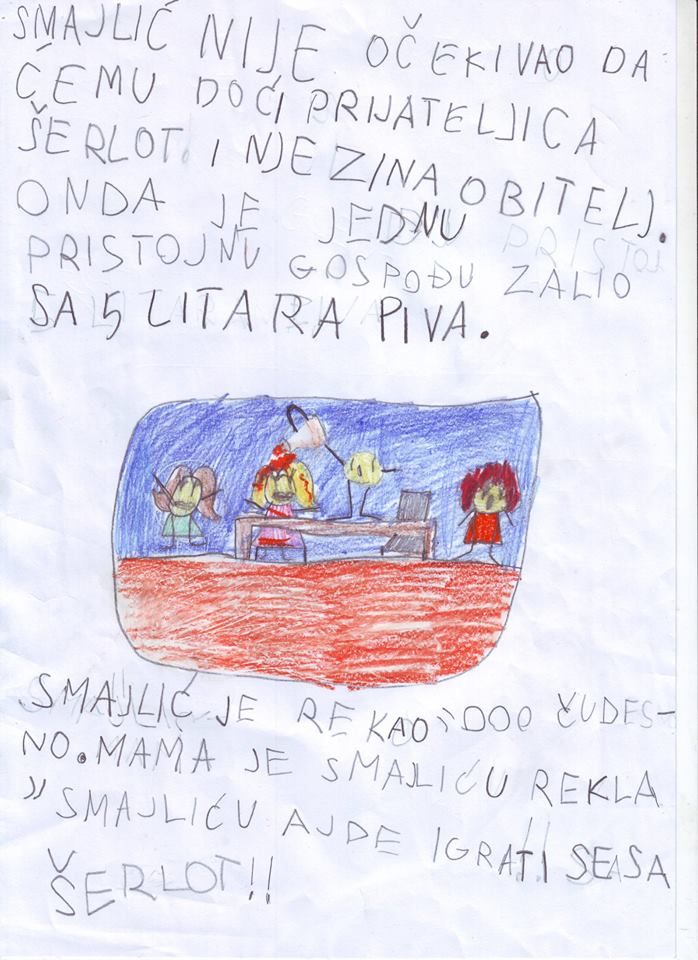 SMAJLIĆ NIJE OČEKIVAO DA
ĆEMU DOĆI PRIJATELJICA
ŠERLOT. I NJEZINA OBITELJ.
ONDA JE JEDNU
PRISTOJNU GOSPOĐU ZALIO
SA 5 LITARA PIVA.
SMAJLIĆ JE REKAO "OOO ČUDES-
NO. MAMA JE SMAJLIĆU REKLA
"SMAJLIĆU AJDE IGRATI SE SA
ŠERLOT!!